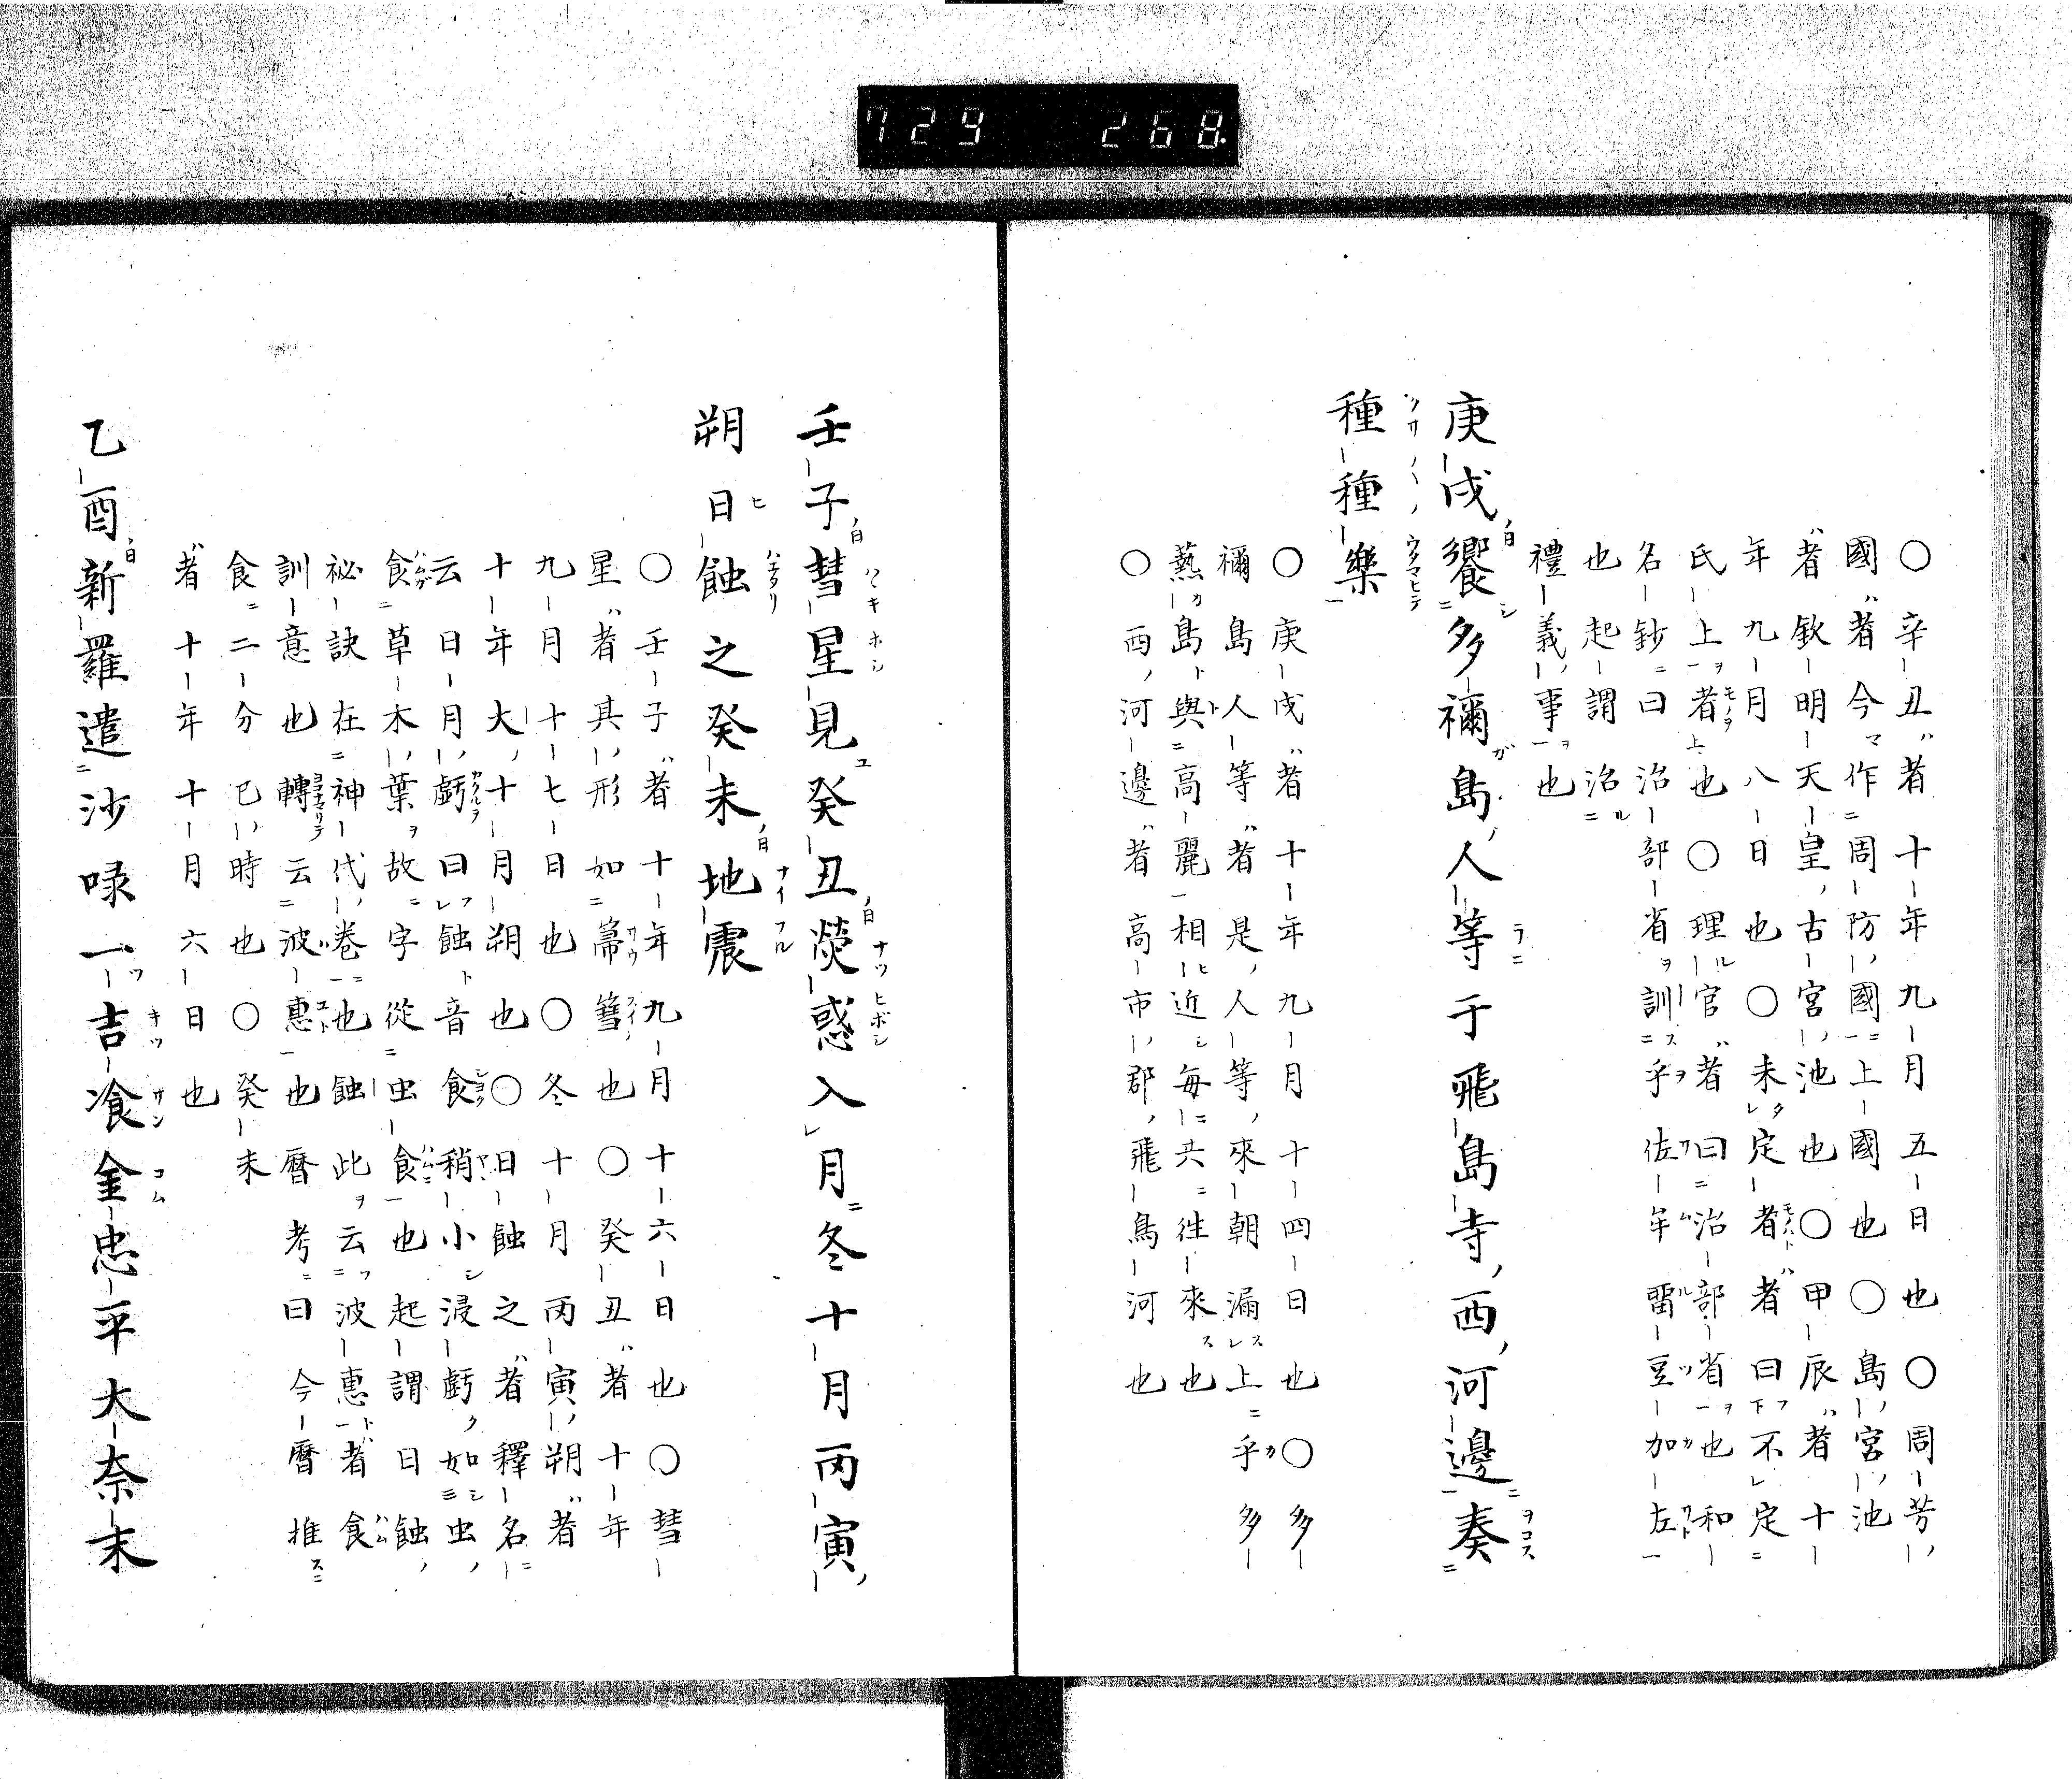 729 268.
○辛丑者十年九月五日也○周芳
國者今作周防國上國也○島宮池
者欽明天皇古宮池也○甲辰者十
年九月八日也○未定者者曰不定
氏上者也○理官者曰治部省也和
名鈔曰治部省訓乎佐牟雷豆加左
也起謂治
禮義事也
庚戌饗多禰島人等于飛島寺西河邊奏
種種樂
○庚戌者十年九月十四日也○多
禰島人等者是人等來朝漏上乎多
島與高麗相近每共往來也
○西河邊者高市郡飛鳥河也
壬子彗星見癸丑熒惑入月冬十月丙寅
朔日蝕之癸未地震
○壬子者十年九月十六日也○彗
星者其形如篲也○癸丑者十年
九月十七日也○冬十月丙寅朔者
十年大十月朔也○日蝕之者釋名
云日月虧曰蝕音食稍小浸虧如虫
食草木葉故字從虫食也起謂日蝕
祕訣在神代卷也蝕此云波惠者食
訓意也轉云波惠也曆考曰今曆推
食二分巳時也○癸未
者十年十月六日也
乙酉新羅遣沙㖨一吉飡金忠平大奈末